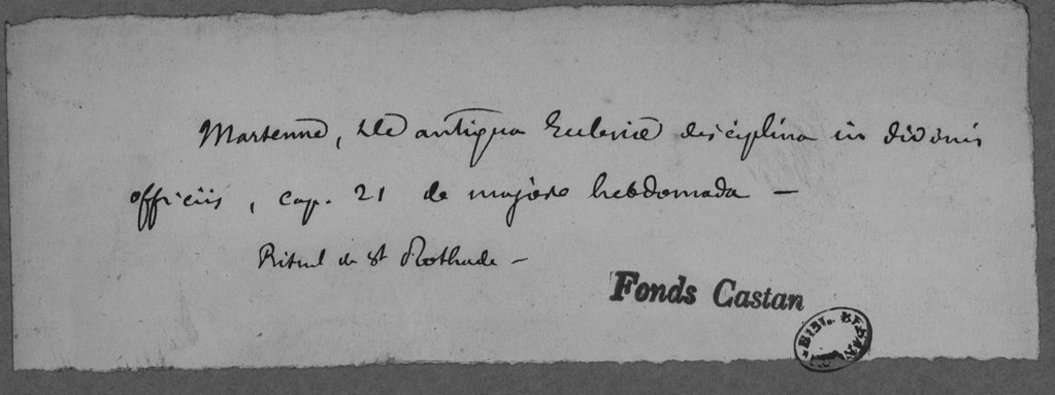 Martenne, De antiqua Ecclesiæ disciplina in divinis
officiis, cap. 21 de majore hebdomada —
Rituel de St Prothade —
Fonds Castan
BIBL. BESAN